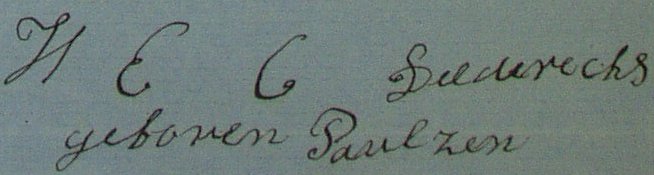 H E C Deederechs
geboren Paulzen